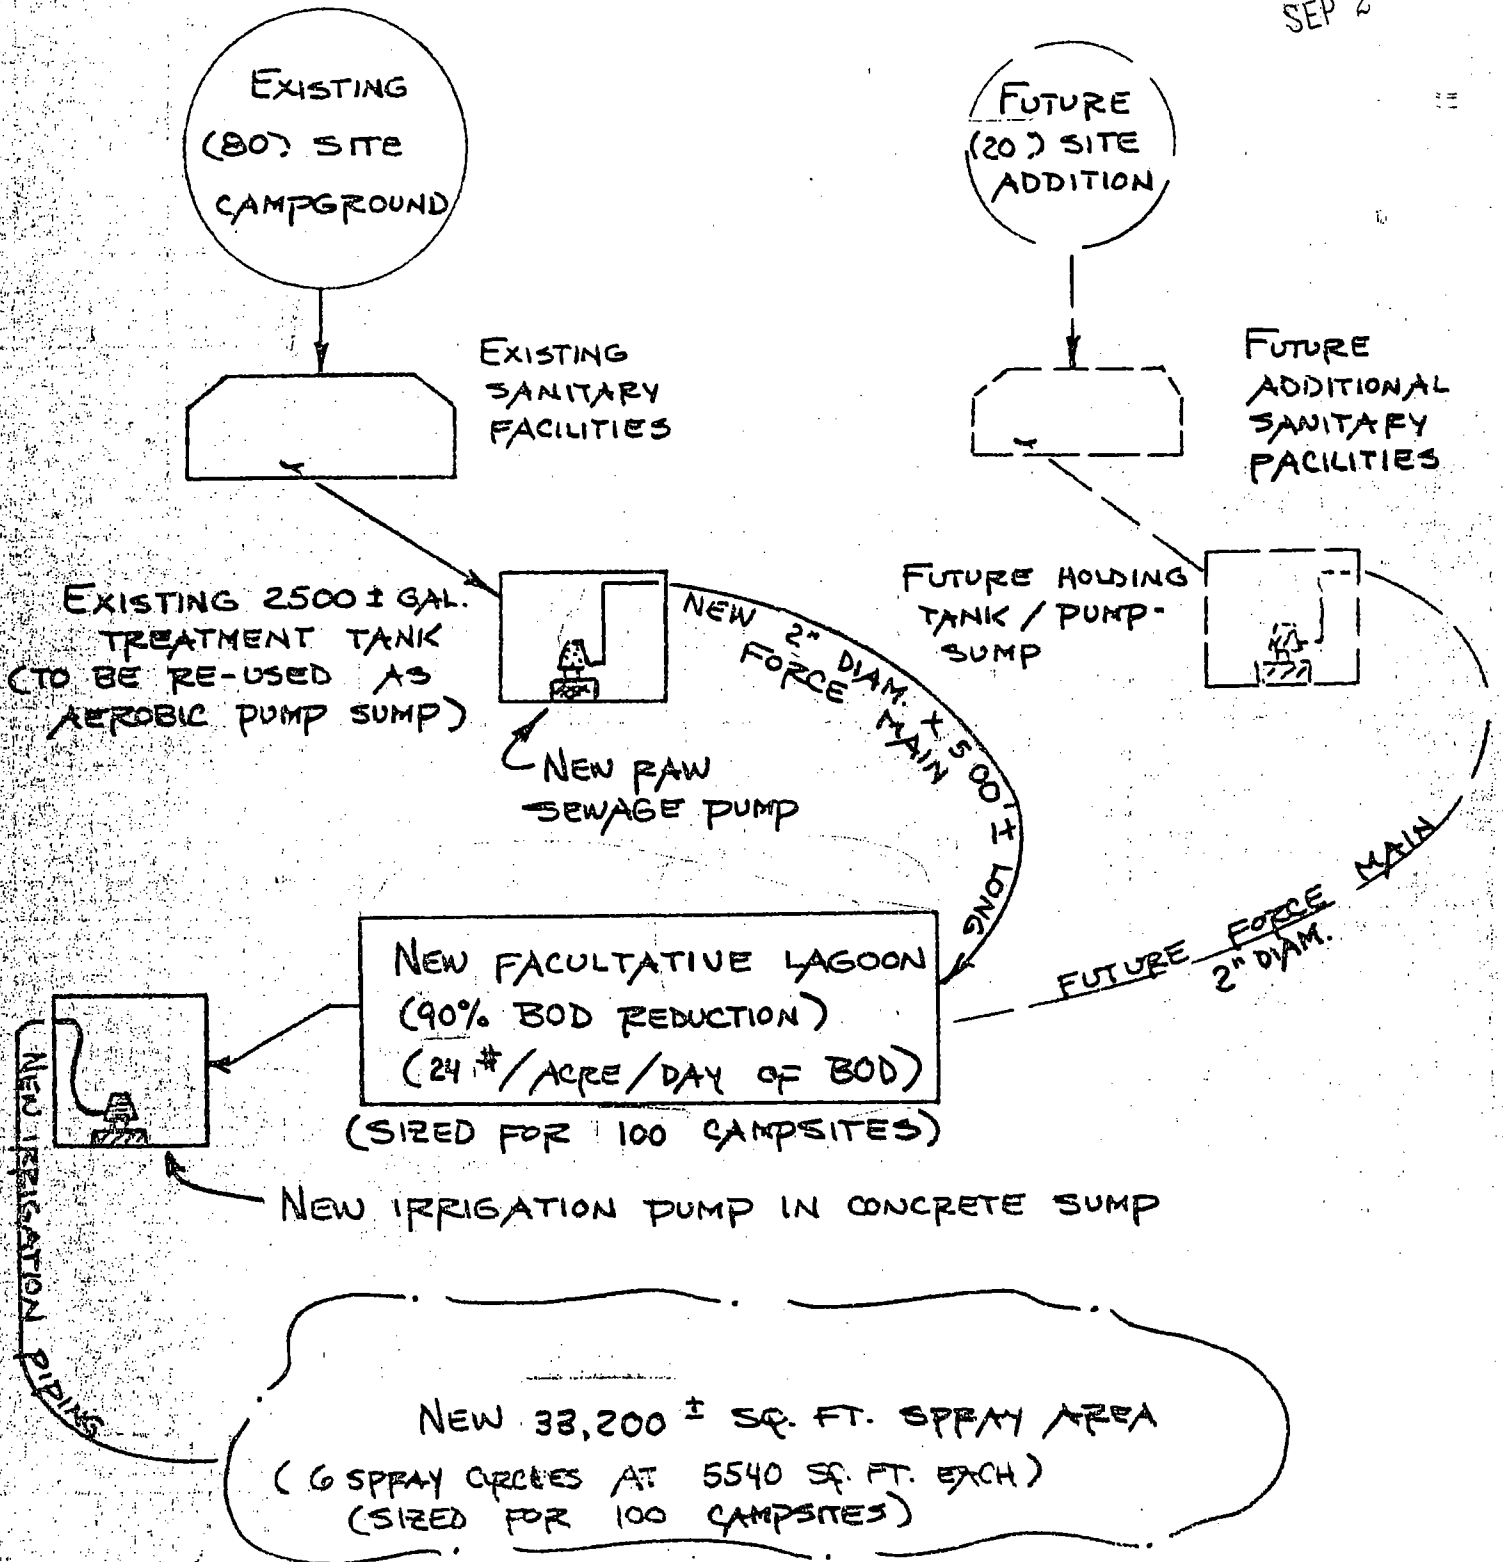 SEP 2
EXISTING
(80) SITE
CAMPGROUND
FUTURE
(20) SITE
ADDITION
EXISTING
SANITARY
FACILITIES
FUTURE
ADDITIONAL
SANITARY
FACILITIES
EXISTING 2500 ± GAL.
TREATMENT TANK
(TO BE RE-USED AS
AEROBIC PUMP SUMP)
NEW 2" DIAM. X 500'± LONG
FORCE MAIN
FUTURE HOLDING
TANK / PUMP-
SUMP
NEW RAW
SEWAGE PUMP
FUTURE FORCE MAIN
2" DIAM.
NEW FACULTATIVE LAGOON
(90% BOD REDUCTION)
(24 #/ACRE/DAY OF BOD)
(SIZED FOR 100 CAMPSITES)
NEW IRRIGATION PUMP IN CONCRETE SUMP
NEW IRRIGATION PIPING
NEW 33,200 ± SQ. FT. SPRAY AREA
(6 SPRAY CIRCLES AT 5540 SQ. FT. EACH)
(SIZED FOR 100 CAMPSITES)